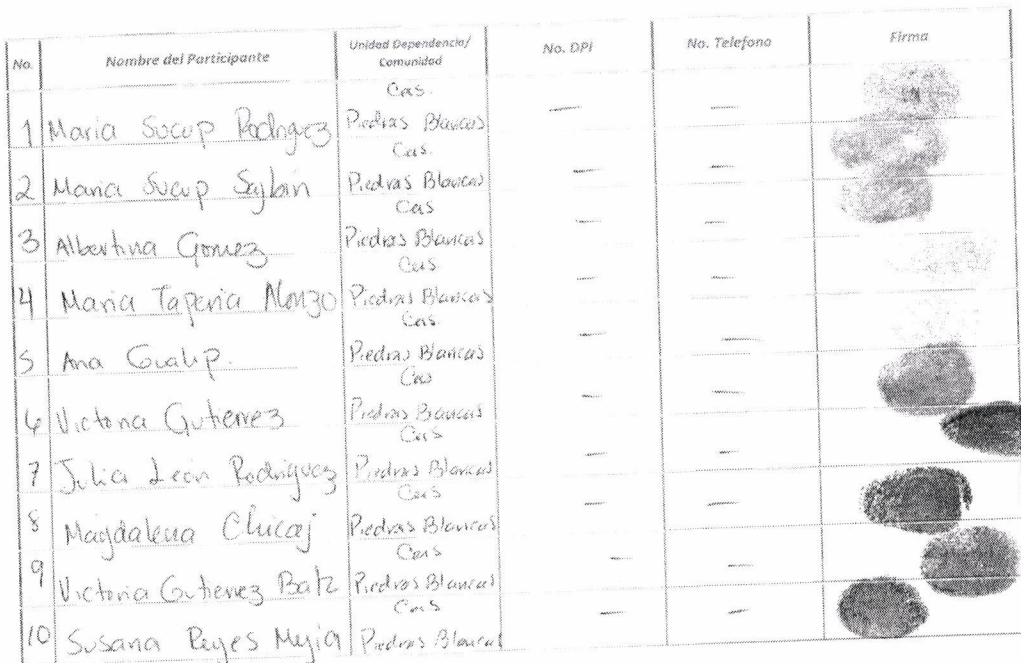 No. Nombre del Participante Unidad Dependencia/ Comunidad No. DPI No. Telefono Firma
Cas.
1 Maria Sucup Rodriguez Piedras Blancas — —
Cas.
2 Maria Sucup Piedras Blancas — —
Cas
3 Albertina Gomez Piedras Blancas — —
Cas
4 Maria Taperia Alonzo Piedras Blancas — —
Cas.
5 Ana Gualip. Piedras Blancas — —
Cas
6 Victoria Gutierrez Piedras Blancas — —
Cas
7 Julia León Rodriguez Piedras Blancas — —
Cas
8 Magdalena Chicaj Piedras Blancas — —
Cas
9 Victoria Gutierrez Batz Piedras Blancas — —
Cas
10 Susana Reyes Mejia Piedras Blancas — —